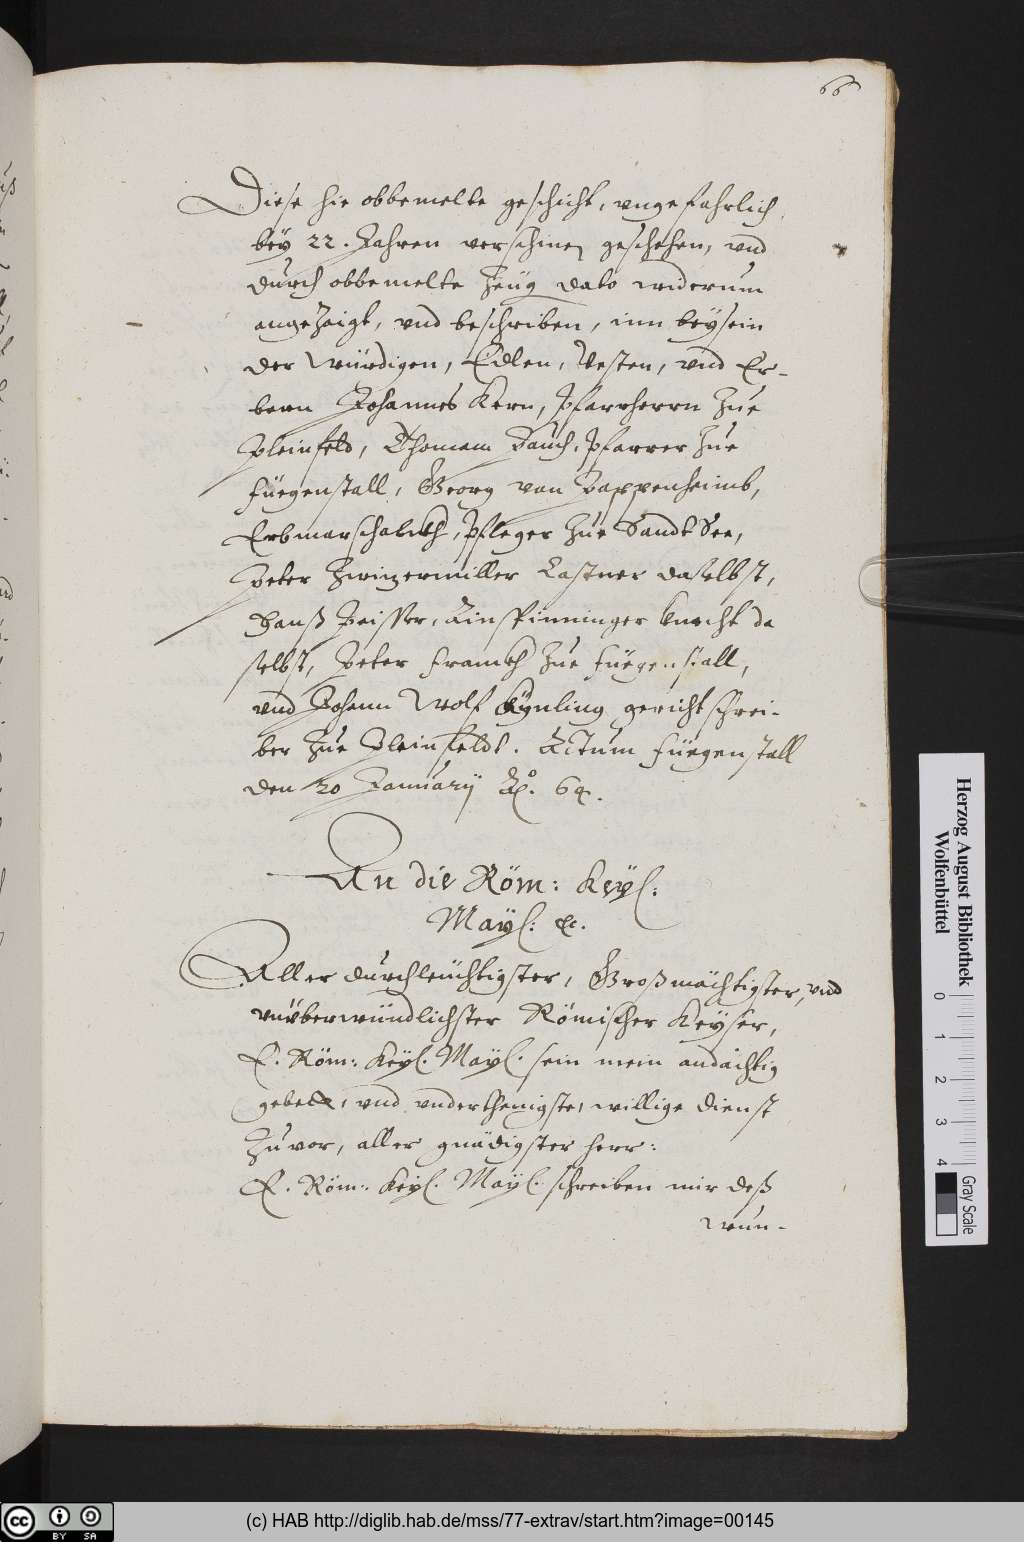 66
Diese hie obbemelte geschicht, vngefahrlich
bey 22. Jahren verschinen geschehen, vnd
durch obbemelte Zeüg dato widerum
angezaigt, vnd beschriben, inn beysein
der Würdigen, Edlen, Vesten, vnd Er-
bern Johannes Kern, Pfarrherrn Zue
Pleinfeld, Thomam Bauch, Pfarrer Zue
Füegenstall, Georg von Bappenheimb,
Erbmarschalckh, Pfleger Zue SandtSee,
Peter Zwingermiller Castner daselbst,
Hanß Peisser, Ainspinninger knecht da
selbst, Peter Franckh Zue Füegenstall,
vnd Johann Wolf Kynling gerichtschrei-
ber Zue Pleinfeldt. Actum Füegenstall
den 20 Januarij Ao. 64.
An die Röm: Keyl:
Mayl: &c.
Aller durchleüchtigster, Großmächtigster, vnd
vnüberwündlichster Römischer Keyser,
E. Röm: Keyl. Mayl. sein mein andächtig
gebett, vnd vnderthenigste, willige dienst
Zuvor, aller gnädigster herr:
E. Röm: Keyl. Mayl. schreiben mir deß
wun-
Herzog August Bibliothek
Wolfenbüttel
0 1 2 3 4
Gray Scale
cc BY SA
(c) HAB http://diglib.hab.de/mss/77-extrav/start.htm?image=00145